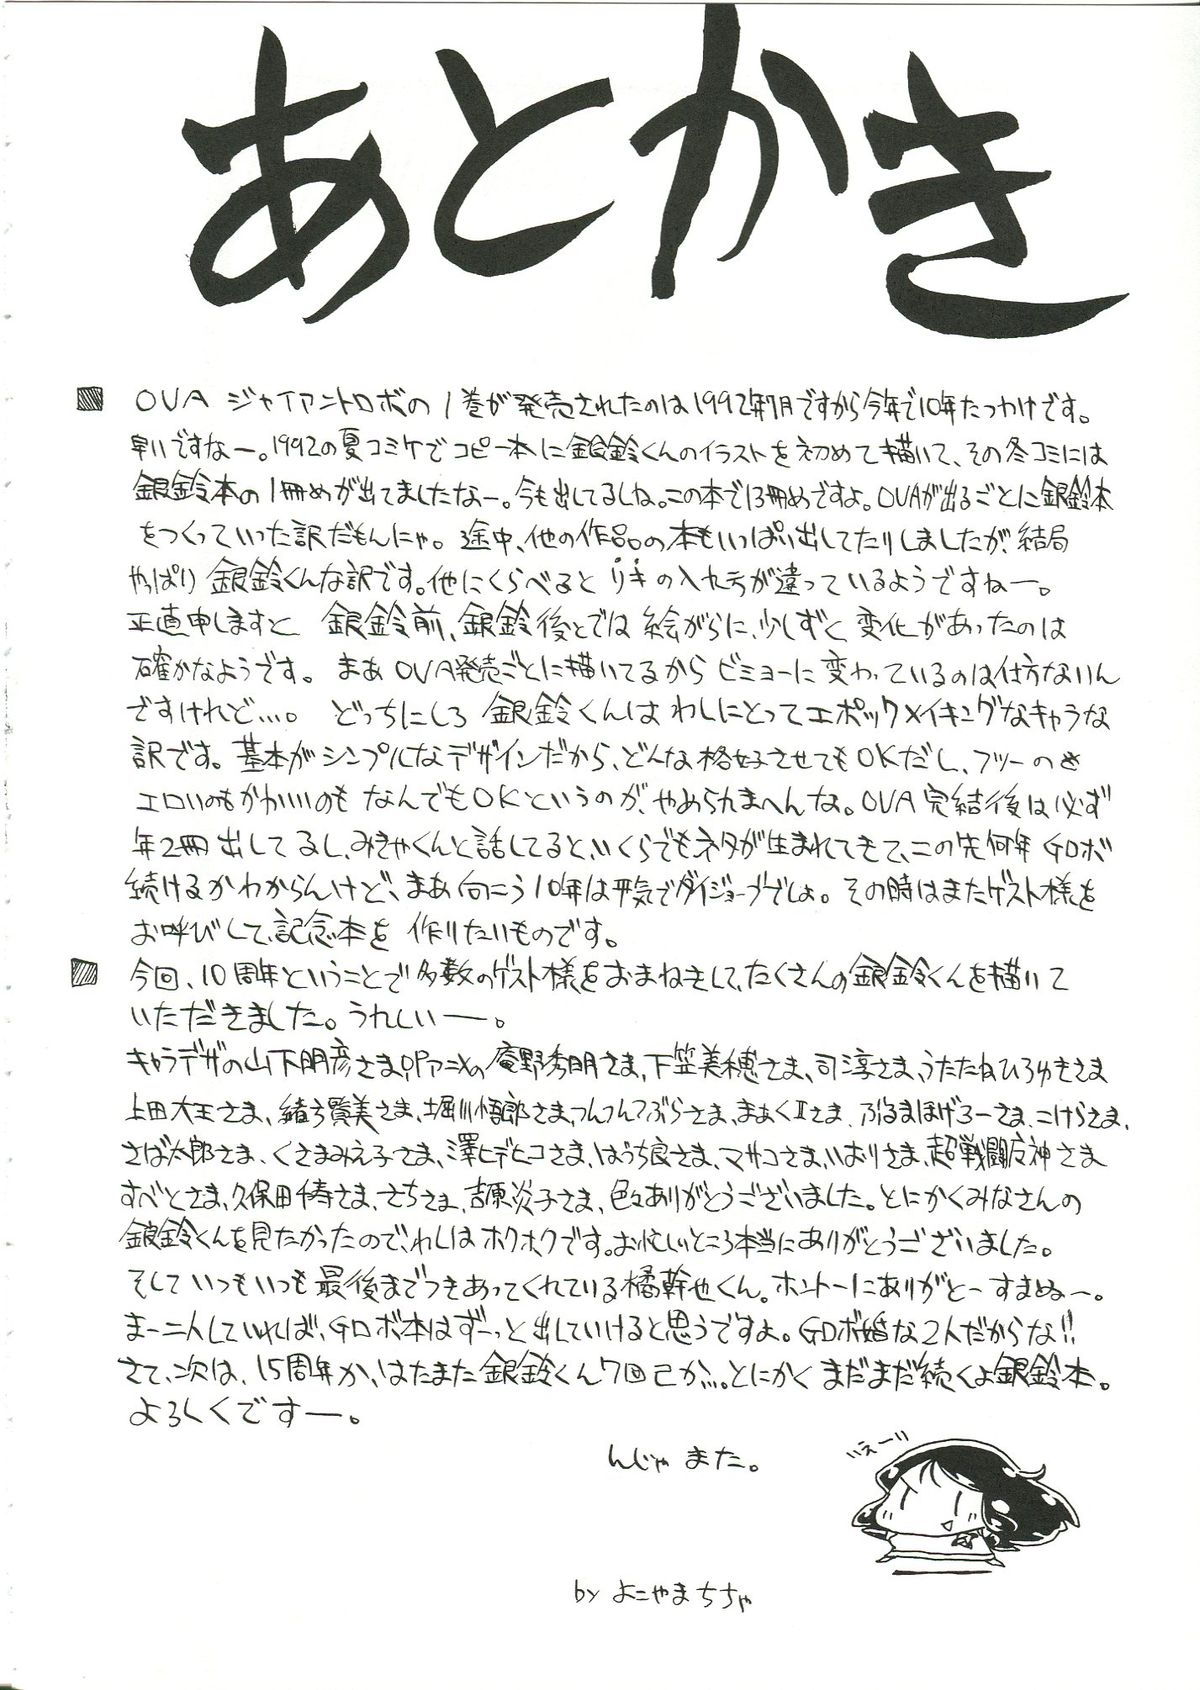 あとかき
OVA ジャイアントロボの1巻が発売されたのは1992年7月ですから今年で10年たつわけです。
早いですなー。1992の夏コミケでコピー本に銀鈴くんのイラストを初めて描いて、その冬コミには
銀鈴本の1冊めが出てましたなー。今も出してるしね。この本で13冊めですよ。OVAが出るごとに銀鈴本
をつくっていった訳だもんにゃ。途中、他の作品の本もいっぱい出してたりしましたが、結局
やっぱり銀鈴くんな訳です。他にくらべるとりきの入れ方が違っているようですねー。
正直申しますと 銀鈴前、銀鈴後とでは絵がらに、少しずつ変化があったのは
確かなようです。まあOVA発売ごとに描いてるからビミョーに変わっているのは仕方ないん
ですけれど…。どっちにしろ 銀鈴くんはわしにとってエポックメイキングなキャラな
訳です。基本がシンプルなデザインだから、どんな格好させてもOKだし、フツーのも
エロいのもかわいいのもなんでもOKというのが、やめられまへんな。OVA完結後は必ず
年2冊出してるし、みきやくんと話してると、いくらでもネタが生まれてきて、この先何年Gロボ
続けるかわからんけど、まあ向こう10年は平気でダイジョーブでしょ。その時はまたゲスト様を
お呼びして、記念本を作りたいものです。
今回、10周年ということで多数のゲスト様をおまねきして、たくさんの銀鈴くんを描いて
いただきました。うれしいー。
キャラデザの山下明彦さま、OPアニメの庵野秀明さま、下笠美穂さま、司淳さま、うたたねひろゆきさま
上田大王さま、緒方賢美さま、堀川悟郎さま、つんつんてぶらさま、まぁくⅡさま、ぶるまほげろーさま、こけらさま、
さば太郎さま、くさまみえ子さま、澤ヒデヒコさま、はうち良さま、マサコさま、いおりさま、超戦闘反神さま
すべとさま、久保田千寿さま、さちさま、吉原炎子さま、色々ありがとうございました。とにかくみなさんの
銀鈴くんを見たかったので、わしはホクホクです。お忙しいところ本当にありがとうございました。
そしていつもいつも最後までつきあってくれている橘幹也くん。ホントーにありがとーすまぬー。
まー二人していれば、Gロボ本はずーっと出していけると思うですよ。Gロボ婚な2人だからな!!
さて、次は、15周年か、はたまた銀鈴くん7回忌か…。とにかくまだまだ続くよ銀鈴本。
よろしくですー。
んじゃまた。
いえーい
by よこやまちちゃ